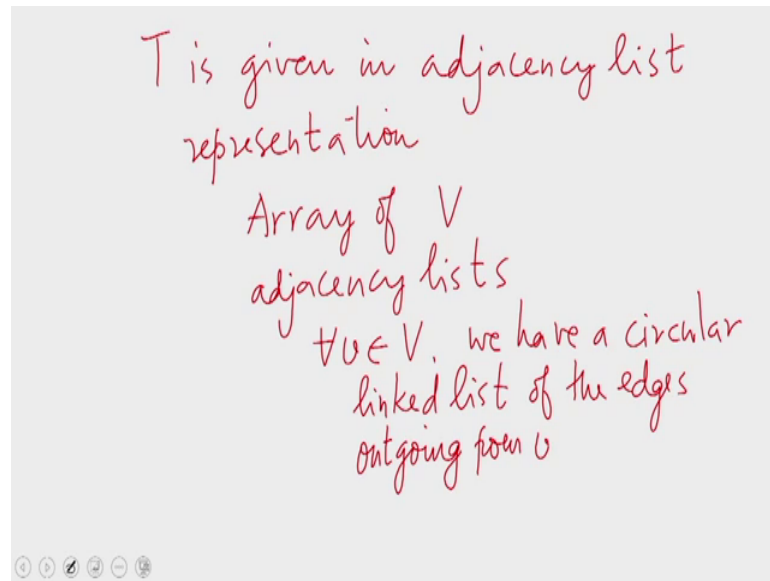 T is given in adjacency list
representation
Array of V
adjacency lists
∀υ ∈ V, we have a circular
linked list of the edges
outgoing from υ